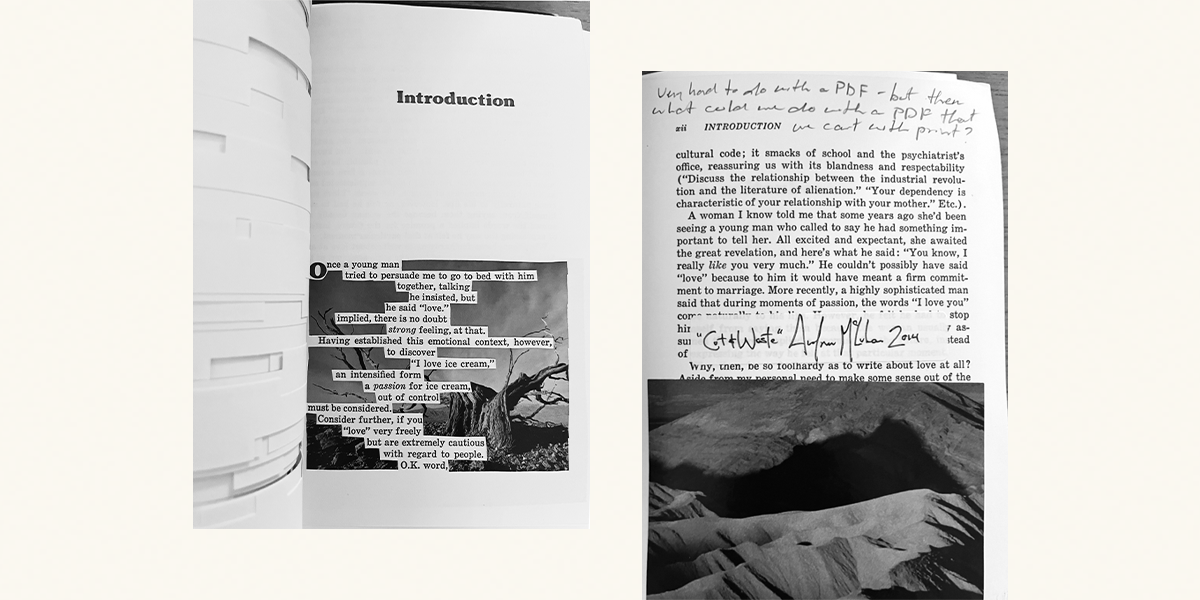 Introduction
Once a young man
tried to persuade me to go to bed with him
together, talking
he insisted, but
he said “love.”
implied, there is no doubt
strong feeling, at that.
Having established this emotional context, however,
to discover
“I love ice cream,”
an intensified form
a passion for ice cream,
out of control
must be considered.
Consider further, if you
“love” very freely
but are extremely cautious
with regard to people.
O.K. word,
Very hard to do with a PDF - but then
what could we do with a PDF that
we can't with print?
xii INTRODUCTION
cultural code; it smacks of school and the psychiatrist's
office, reassuring us with its blandness and respectability
(“Discuss the relationship between the industrial revolu-
tion and the literature of alienation.” “Your dependency is
characteristic of your relationship with your mother.” Etc.).
A woman I know told me that some years ago she'd been
seeing a young man who called to say he had something im-
portant to tell her. All excited and expectant, she awaited
the great revelation, and here's what he said: “You know, I
really like you very much.” He couldn't possibly have said
“love” because to him it would have meant a firm commit-
ment to marriage. More recently, a highly sophisticated man
said that during moments of passion, the words “I love you”
stop
as-
stead
of
"Cut & Waste" Andrew McLuhan 2014
Why, then, be so foolhardy as to write about love at all?
Aside from my personal need to make some sense out of the